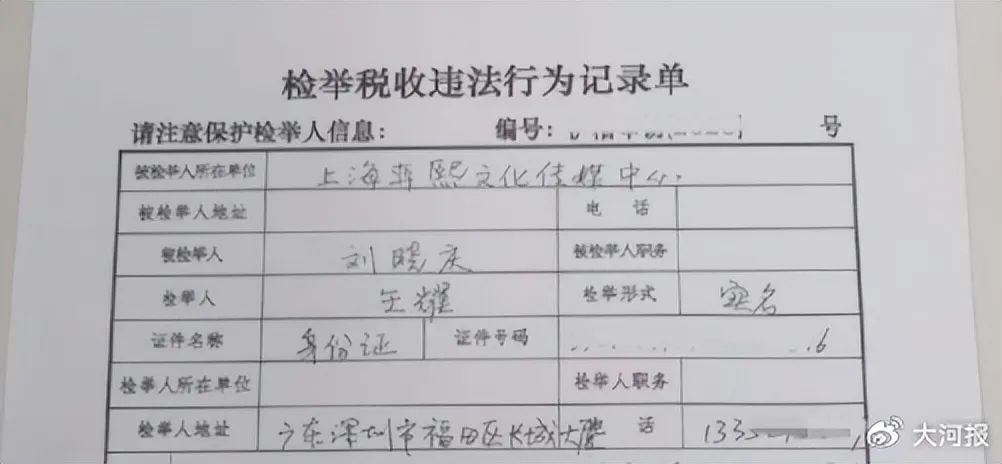 检举税收违法行为记录单
请注意保护检举人信息: 编号: 号
被检举人所在单位 上海 熙文化传媒中心.
被检举人地址 电 话
被检举人 刘晓庆 被检举人职务
检举人 王耀 检举形式 实名
证件名称 身份证 证件号码 6
检举人所在单位 检举人职务
检举人地址 广东深圳市福田区长城大厦 话 133
大河报